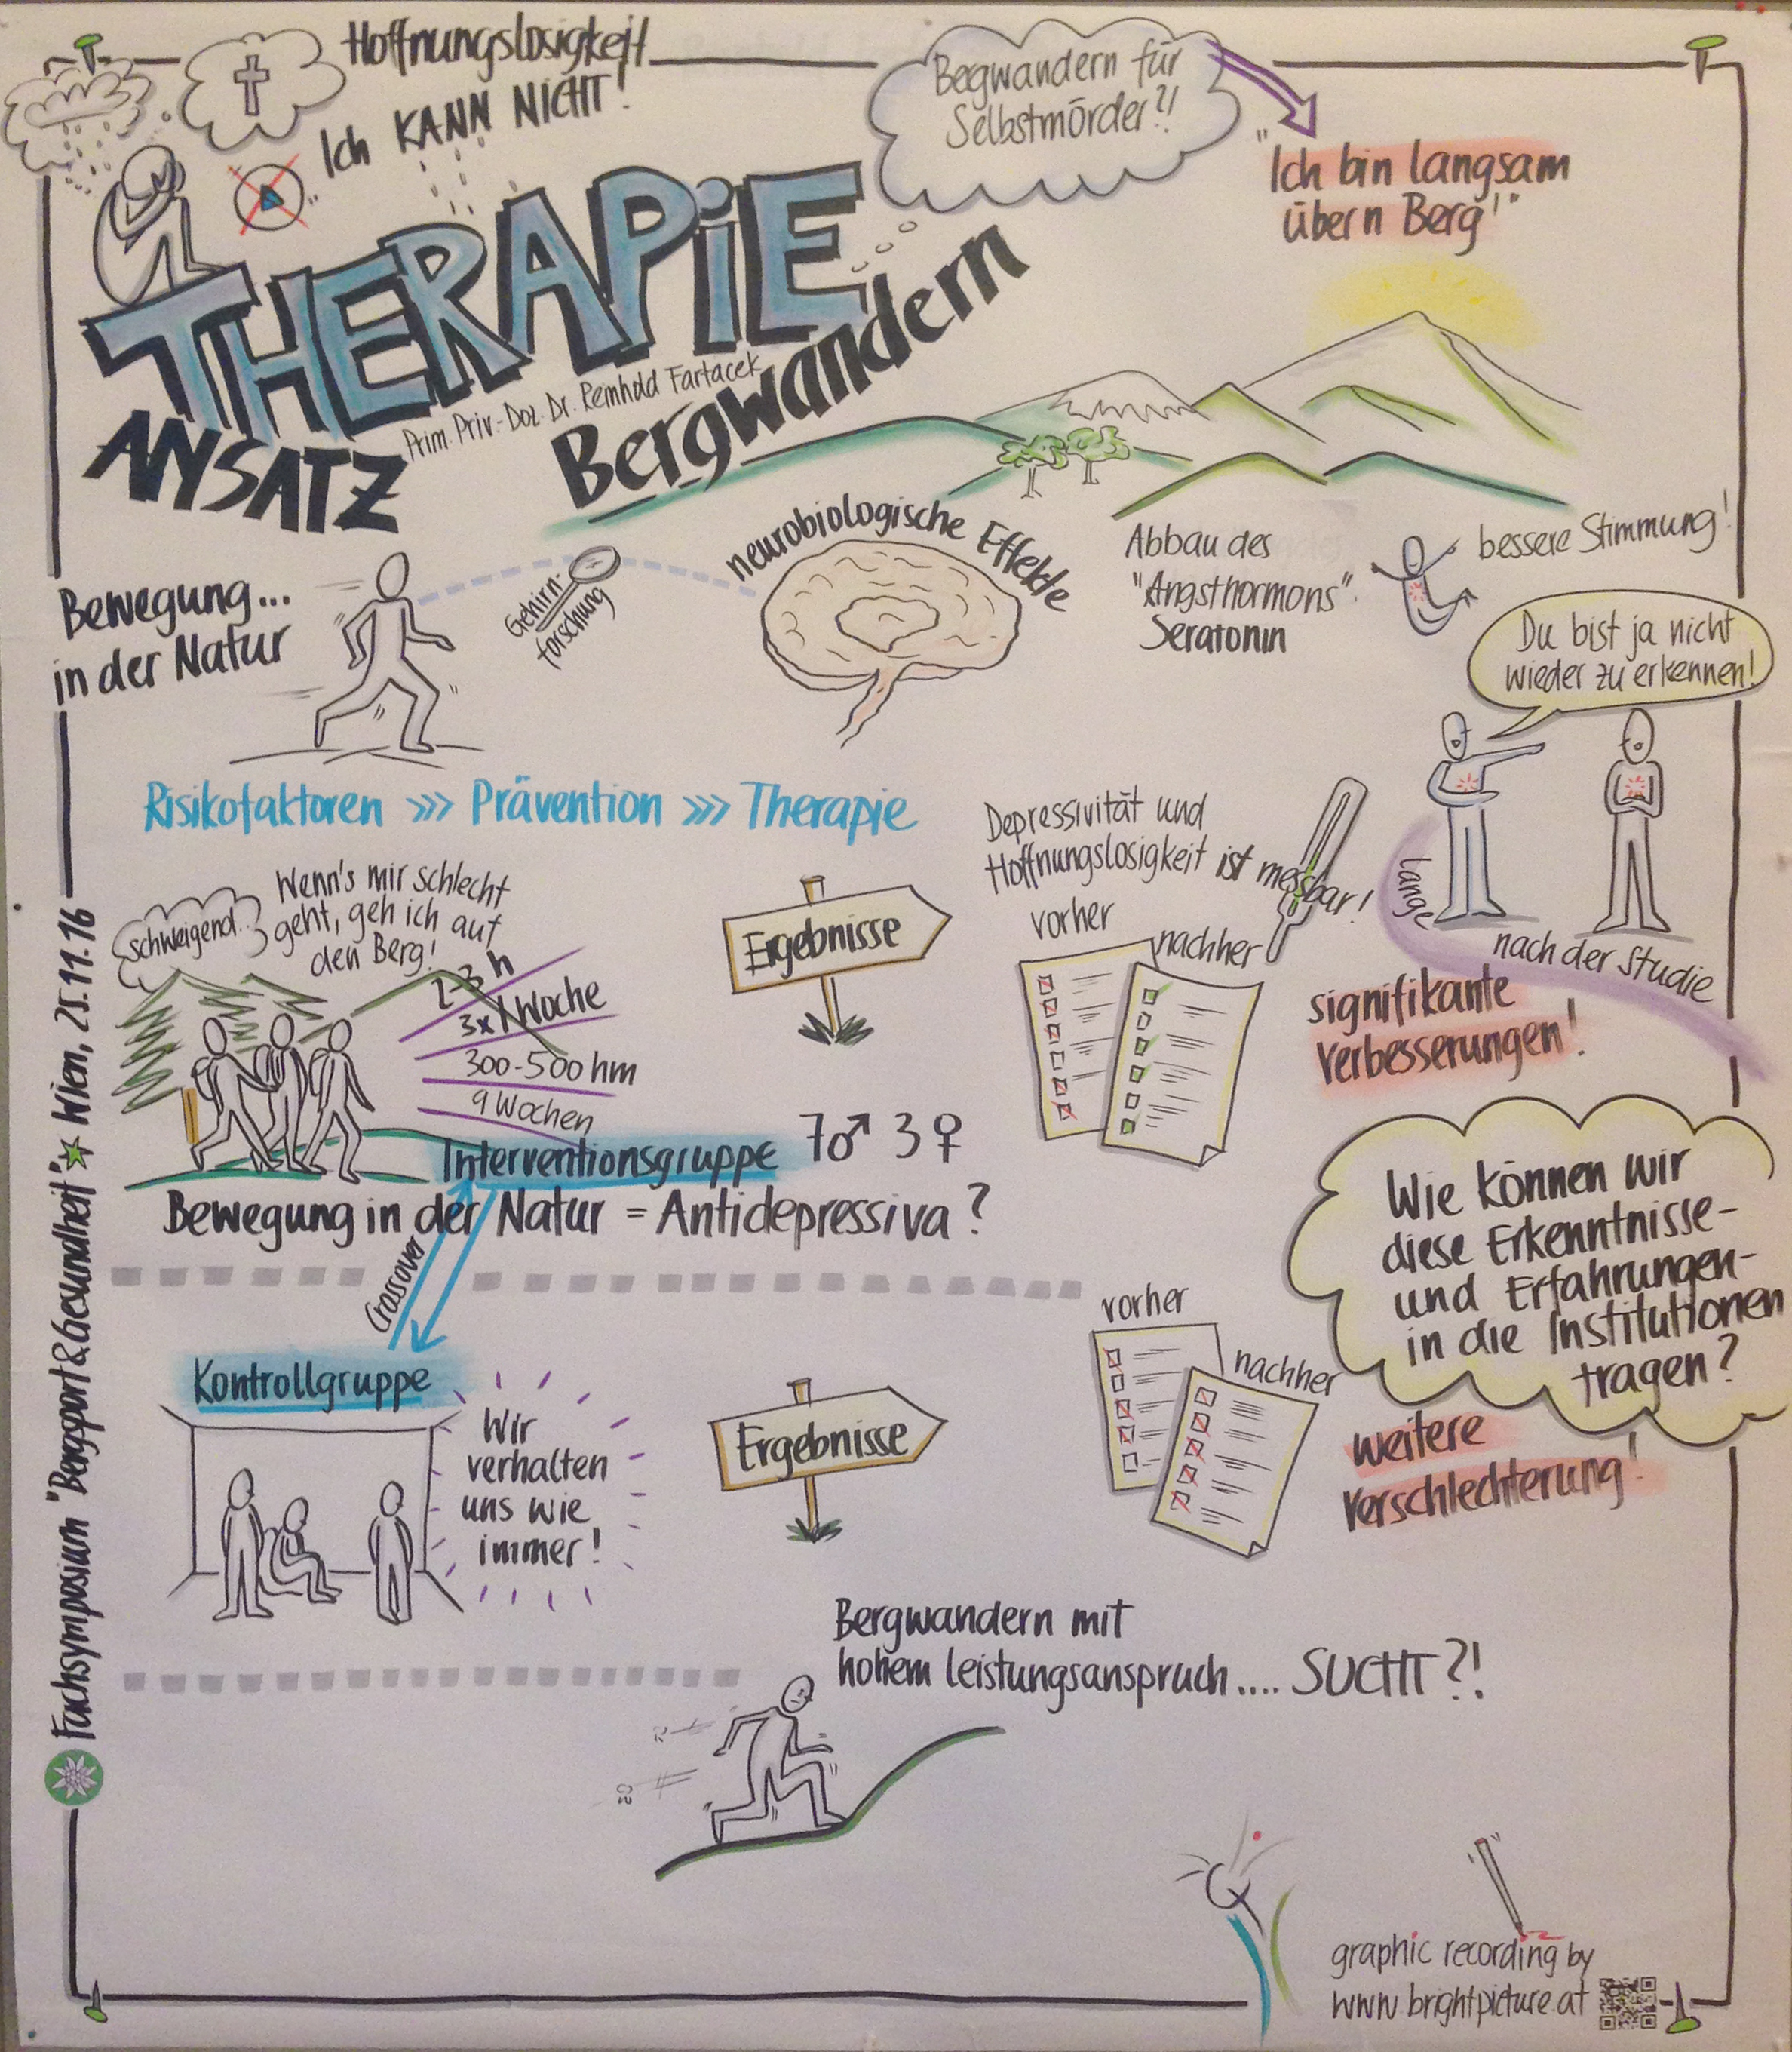 Hoffnungslosigkeit
"Ich KANN NICHT!
Bergwandern für
Selbstmörder?!
"Ich bin langsam
übern Berg!"
THERAPiE
ANSATZ
Prim. Priv.-Doz. Dr. Reinhold Fartacek
Bergwandern
Bewegung...
in der Natur
Gehirn-
forschung
neurobiologische Effekte
Abbau des
"Angsthormons"
Seratonin
bessere Stimmung!
Du bist ja nicht
wieder zu erkennen!
Risikofaktoren >>> Prävention >>> Therapie
Depressivität und
Hoffnungslosigkeit ist messbar!
lange
nach der Studie
schweigend...
Wenn's mir schlecht
geht, geh ich auf
den Berg!
2-3 h
3x/Woche
300-500 hm
9 Wochen
Ergebnisse
vorher
nachher
signifikante
Verbesserungen!
Interventionsgruppe
7♂ 3♀
Bewegung in der Natur = Antidepressiva?
Crossover
Wie können wir
diese Erkenntnisse-
und Erfahrungen-
in die Institutionen
tragen?
Kontrollgruppe
Wir
verhalten
uns wie
immer!
Ergebnisse
vorher
nachher
weitere
Verschlechterung!
Bergwandern mit
hohem Leistungsanspruch.... SUCHT?!
Fachsymposium "Bergsport & Gesundheit" Wien, 25.11.16
graphic recording by
www.brightpicture.at